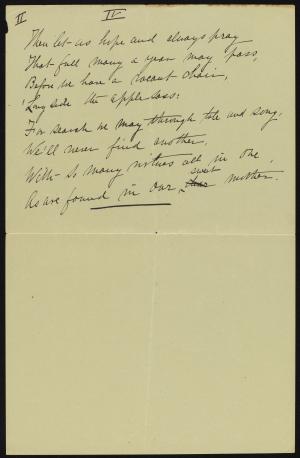 II IV
Then let us hope and always pray
That full many a year may pass,
Before we have a vacant chair,
'Long side the apple sass:
For search we may through tale and song,
We'll never find another,
With so many virtues all in one,
As are found in our sweet mother.